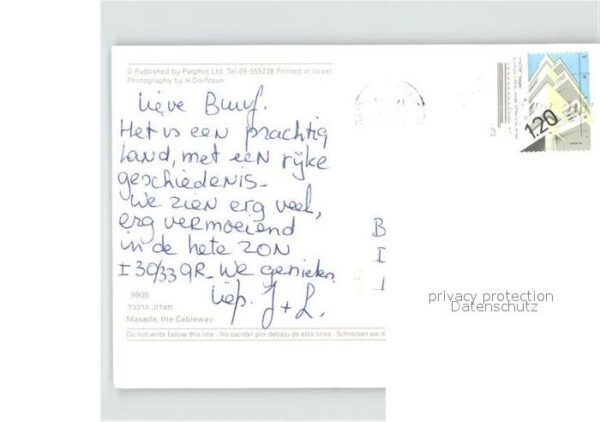 © Published by Palphot Ltd. Tel-09-555238 Printed in Israel
Photography by H.Dorfzaun
Lieve Buuf.
Het is een prachtig
land, met een rijke
geschiedenis-
We zien erg veel,
erg vermoeiend
in de hete zon
± 30/33 gr- We genieten.
liefs. J + L.
9905
מצדה, הרכבל
Masada, the Cableway.
Do not write below this line - No escribir por debajo de esta linea - Schreiben sie n
1.20
3
B
I
privacy protection
Datenschutz